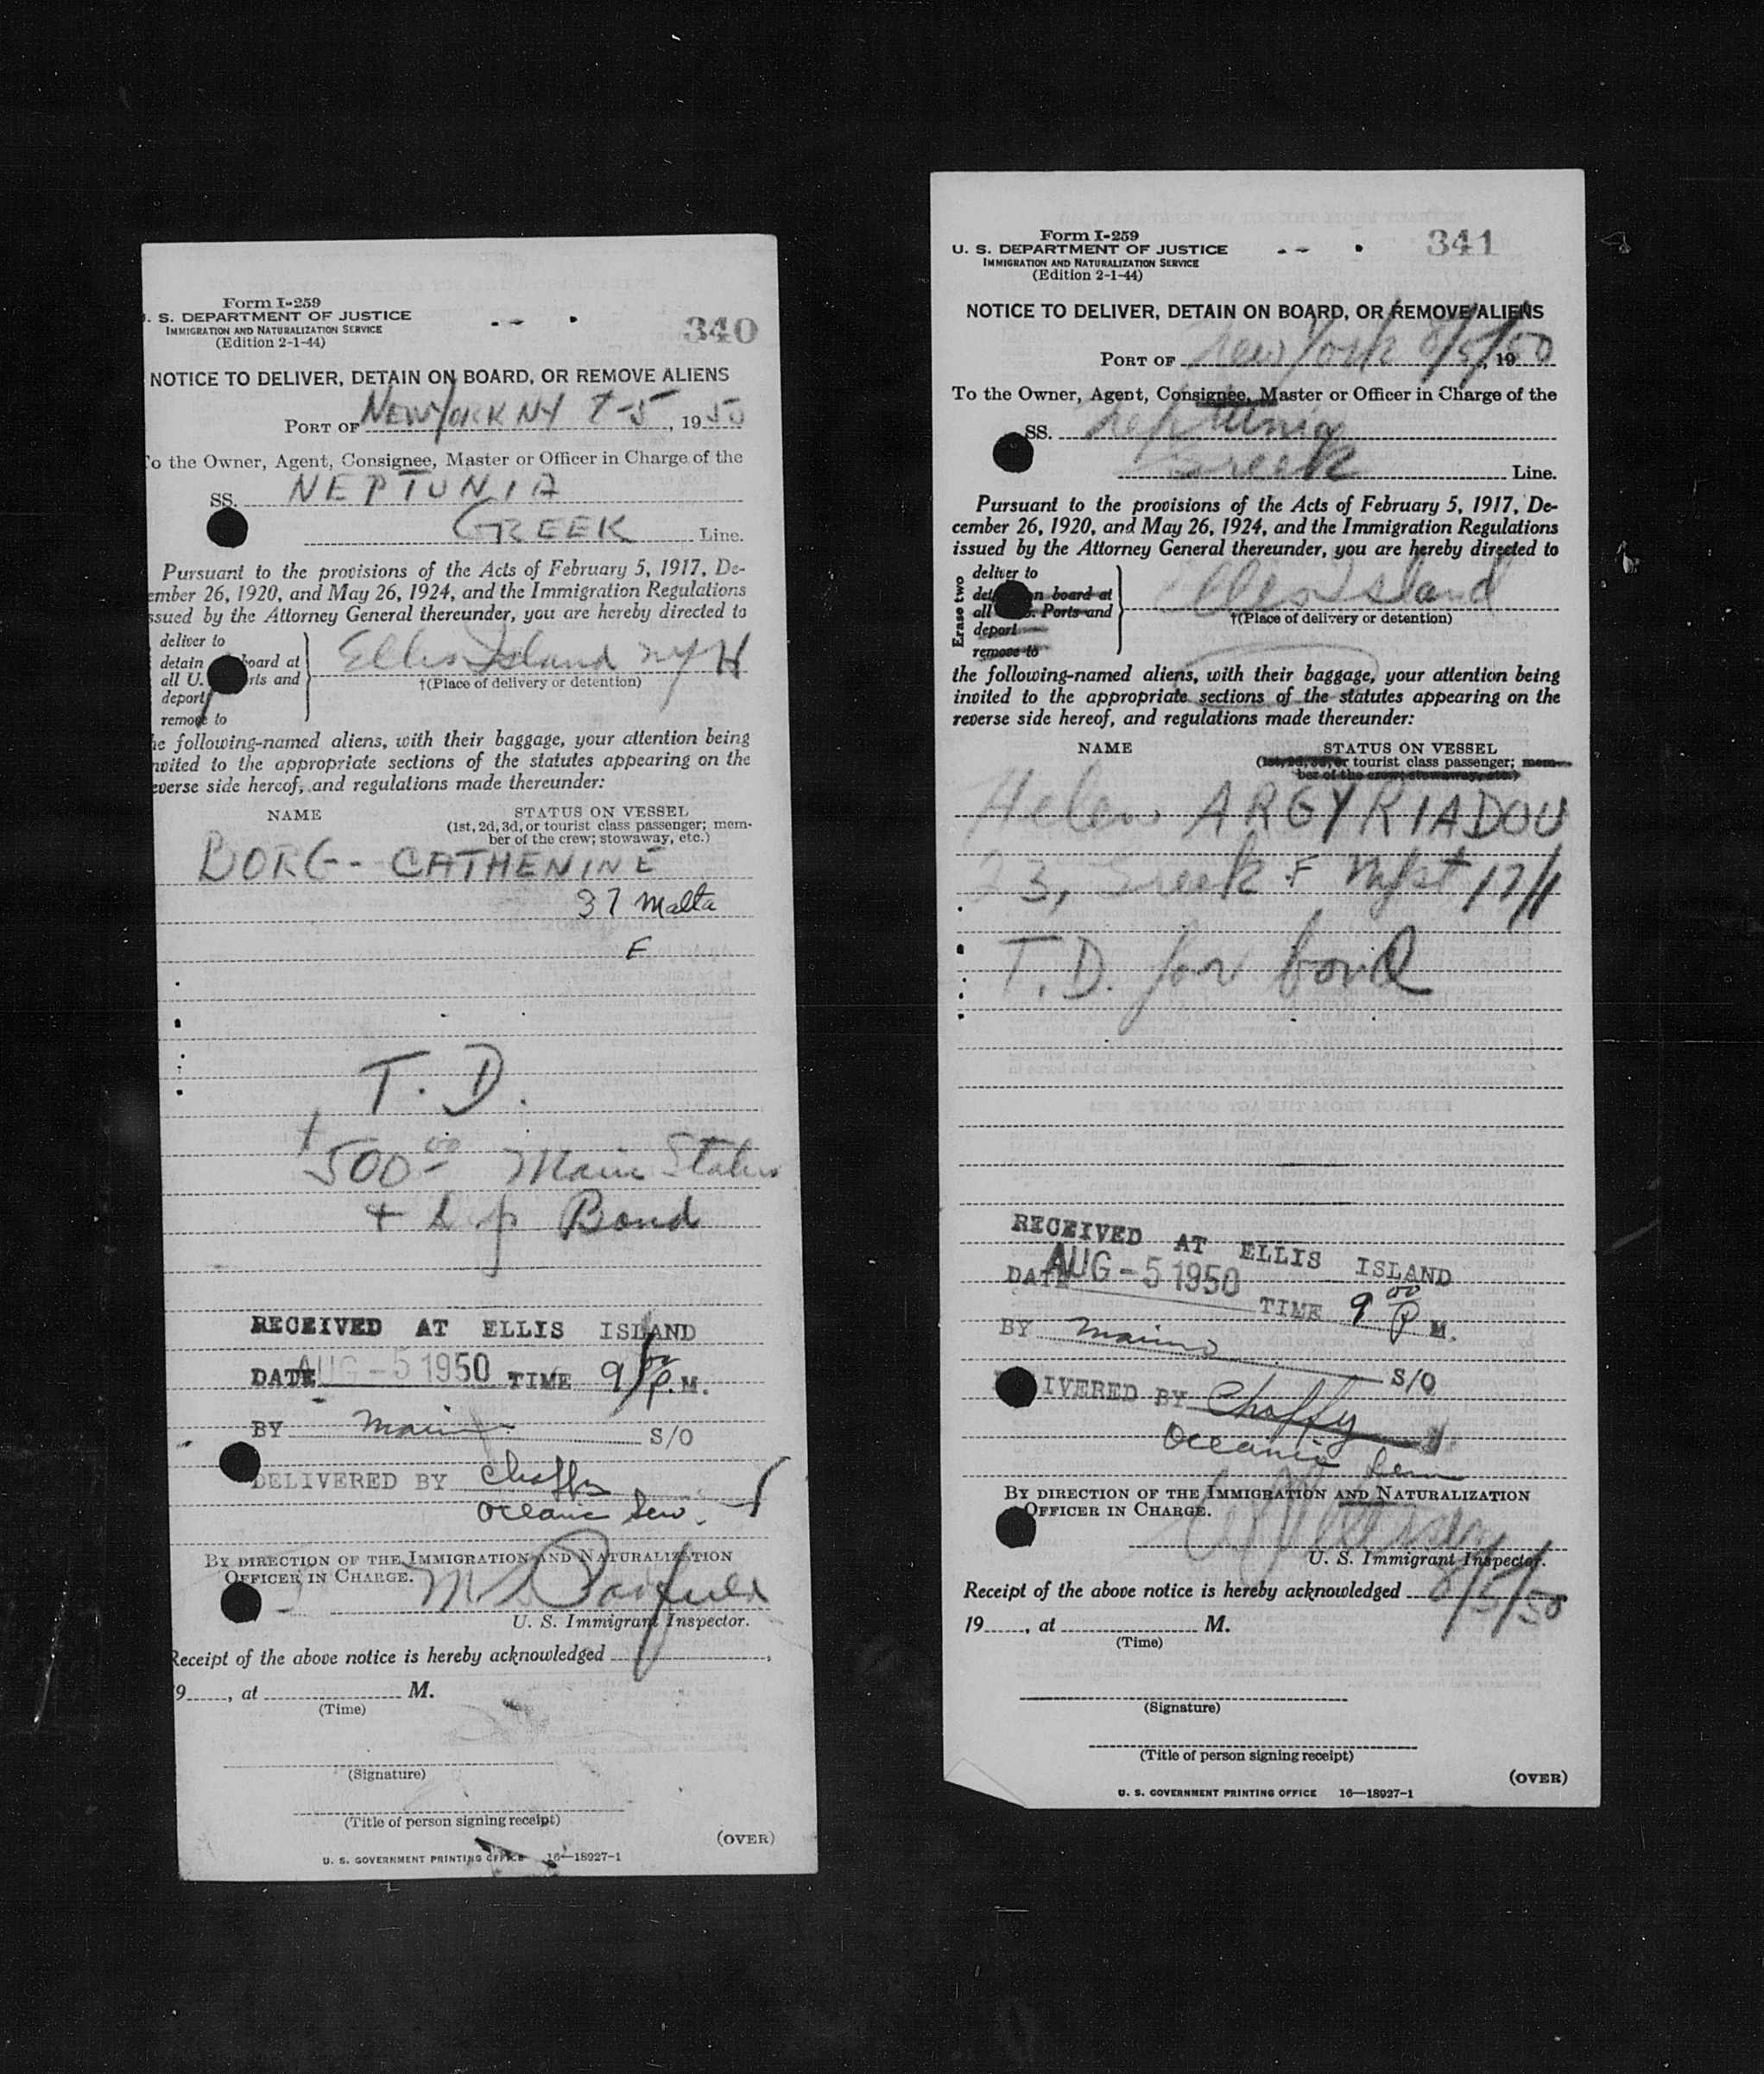 Form I-259
. S. DEPARTMENT OF JUSTICE
IMMIGRATION AND NATURALIZATION SERVICE
(Edition 2-1-44)
340
NOTICE TO DELIVER, DETAIN ON BOARD, OR REMOVE ALIENS
PORT OF NEW YORK NY 19 50
o the Owner, Agent, Consignee, Master or Officer in Charge of the
SS. NEPTUNIA
GREEK Line.
Pursuant to the provisions of the Acts of February 5, 1917, De-
ember 26, 1920, and May 26, 1924, and the Immigration Regulations
ssued by the Attorney General thereunder, you are hereby directed to
deliver to
detain oard at
all U. rts and
deport
remove to
Ellis Island NYH
†(Place of delivery or detention)
he following-named aliens, with their baggage, your attention being
nvited to the appropriate sections of the statutes appearing on the
everse side hereof, and regulations made thereunder:
NAME STATUS ON VESSEL
(1st, 2d, 3d, or tourist class passenger; mem-
ber of the crew; stowaway, etc.)
BORG - CATHENINE
37 Malta
F
T. D.
500 00 Main Status
+ Bond
RECEIVED AT ELLIS ISLAND
DATE AUG - 5 1950 TIME 9 00 P. M.
BY S/O
DELIVERED BY Chaffy
Oceanic Serv.
BY DIRECTION OF THE IMMIGRATION AND NATURALIZATION
OFFICER IN CHARGE.
U. S. Immigrant Inspector.
Receipt of the above notice is hereby acknowledged ,
9 , at M.
(Time)
(Signature)
(Title of person signing receipt)
(OVER)
U. S. GOVERNMENT PRINTING OFFICE 16—18927-1
Form I-259
U. S. DEPARTMENT OF JUSTICE
IMMIGRATION AND NATURALIZATION SERVICE
(Edition 2-1-44)
341
NOTICE TO DELIVER, DETAIN ON BOARD, OR REMOVE ALIENS
PORT OF New York 8/5/50, 19
To the Owner, Agent, Consignee, Master or Officer in Charge of the
SS. Neptunia
Greek Line.
Pursuant to the provisions of the Acts of February 5, 1917, De-
cember 26, 1920, and May 26, 1924, and the Immigration Regulations
issued by the Attorney General thereunder, you are hereby directed to
Erase two
deliver to
det n board at
all . Ports and
deport
remove to
Ellis Island
†(Place of delivery or detention)
the following-named aliens, with their baggage, your attention being
invited to the appropriate sections of the statutes appearing on the
reverse side hereof, and regulations made thereunder:
NAME STATUS ON VESSEL
(1st, 2d, 3d, or tourist class passenger; mem-
ber of the crew; stowaway, etc.)
Helen ARGYRIADOU
23, Greek F 17/1
T.D. for bond
RECEIVED AT ELLIS ISLAND
DATE AUG - 5 1950 TIME 9 00 P M.
BY S/O
IVERED BY Chaffy
Oceanic
BY DIRECTION OF THE IMMIGRATION AND NATURALIZATION
OFFICER IN CHARGE.
U. S. Immigrant Inspector.
Receipt of the above notice is hereby acknowledged 8/5/50
19 , at M.
(Time)
(Signature)
(Title of person signing receipt)
(OVER)
U. S. GOVERNMENT PRINTING OFFICE 16—18927-1